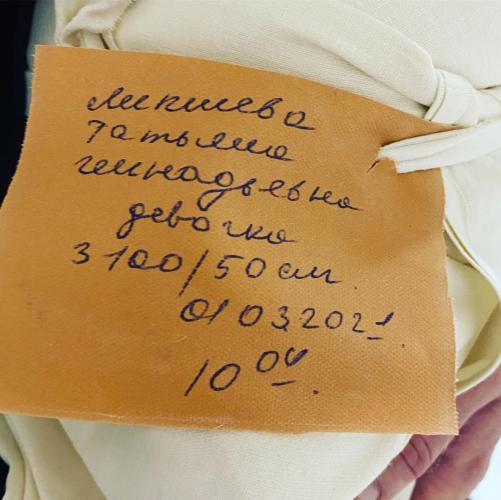 Липшева
Татьяна
Геннадьевна
девочка
3100/50 см
01032021
10 04.